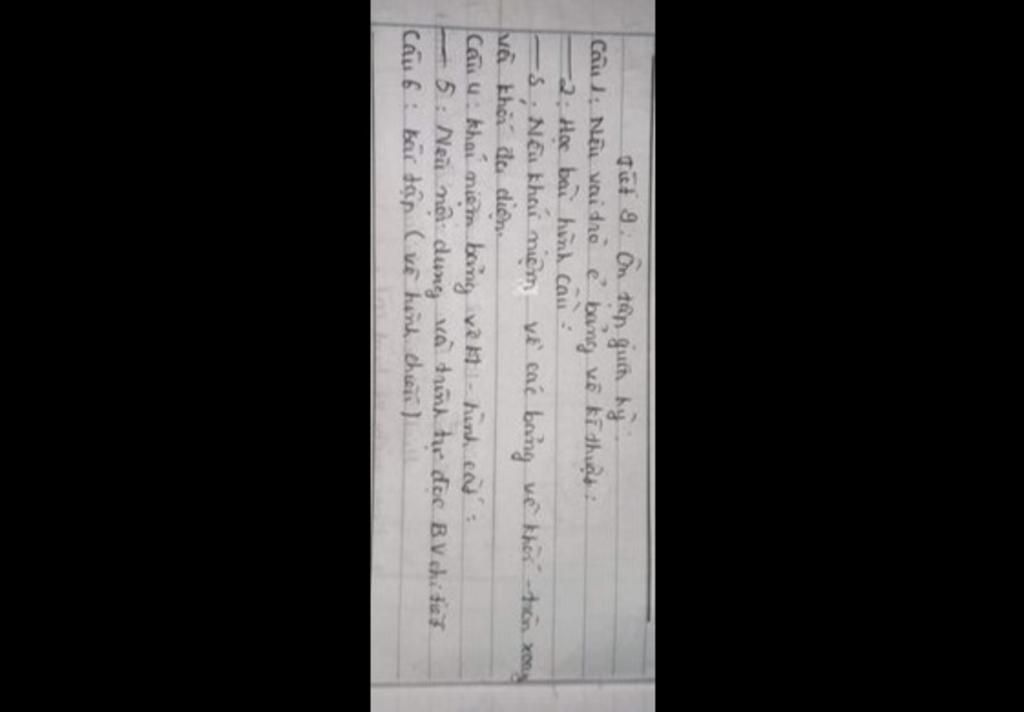 Tiết 8: Ôn tập giữa kỳ.
Câu 1: Nêu vai trò c' bảng vẽ kĩ thuật:
— 2: Học bài hình cầu:
— 3: Nêu khái niệm về các bảng vẽ khối - tròn xoay
và khối đa diện.
Câu 4: khái niệm bảng vẽ kt - hình cắt:
— 5: Nêu nội dung và trình tự đọc BV chi tiết
Câu 6: bài tập (vẽ hình chiếu)